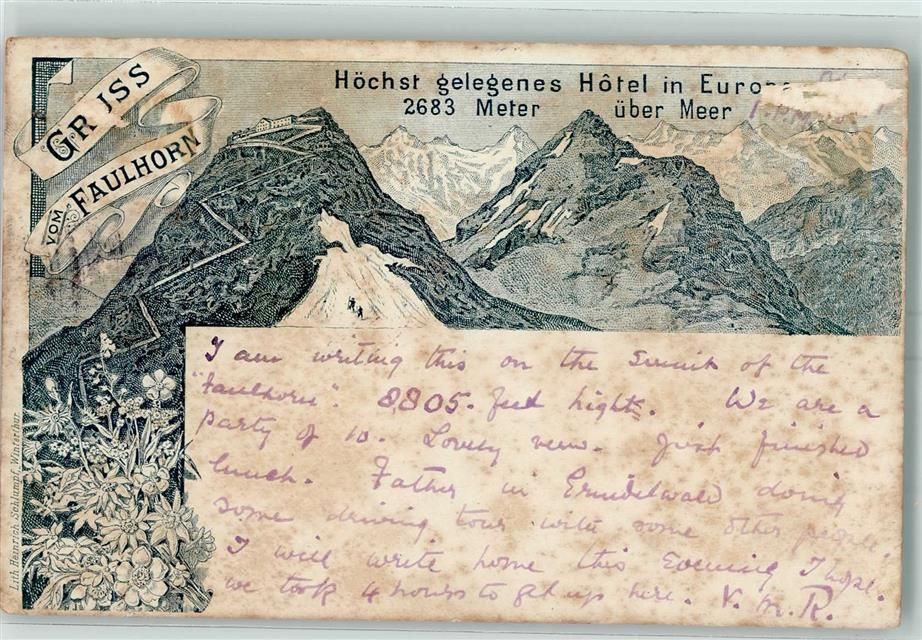 GRUSS
VOM FAULHORN
Höchst gelegenes Hôtel in Europa
2683 Meter über Meer
I am writing this on the Summit of the
"Faulhorn". 8,805. feet hight. We are a
party of 10. Lovely view. Just finished
lunch. Father in Grindelwald doing
some driving tour with some other people.
I will write home this Evening I hope.
we took 4 hours to get up here. V. M. R.
Lith. Heinrich Schlumpf, Winterthur